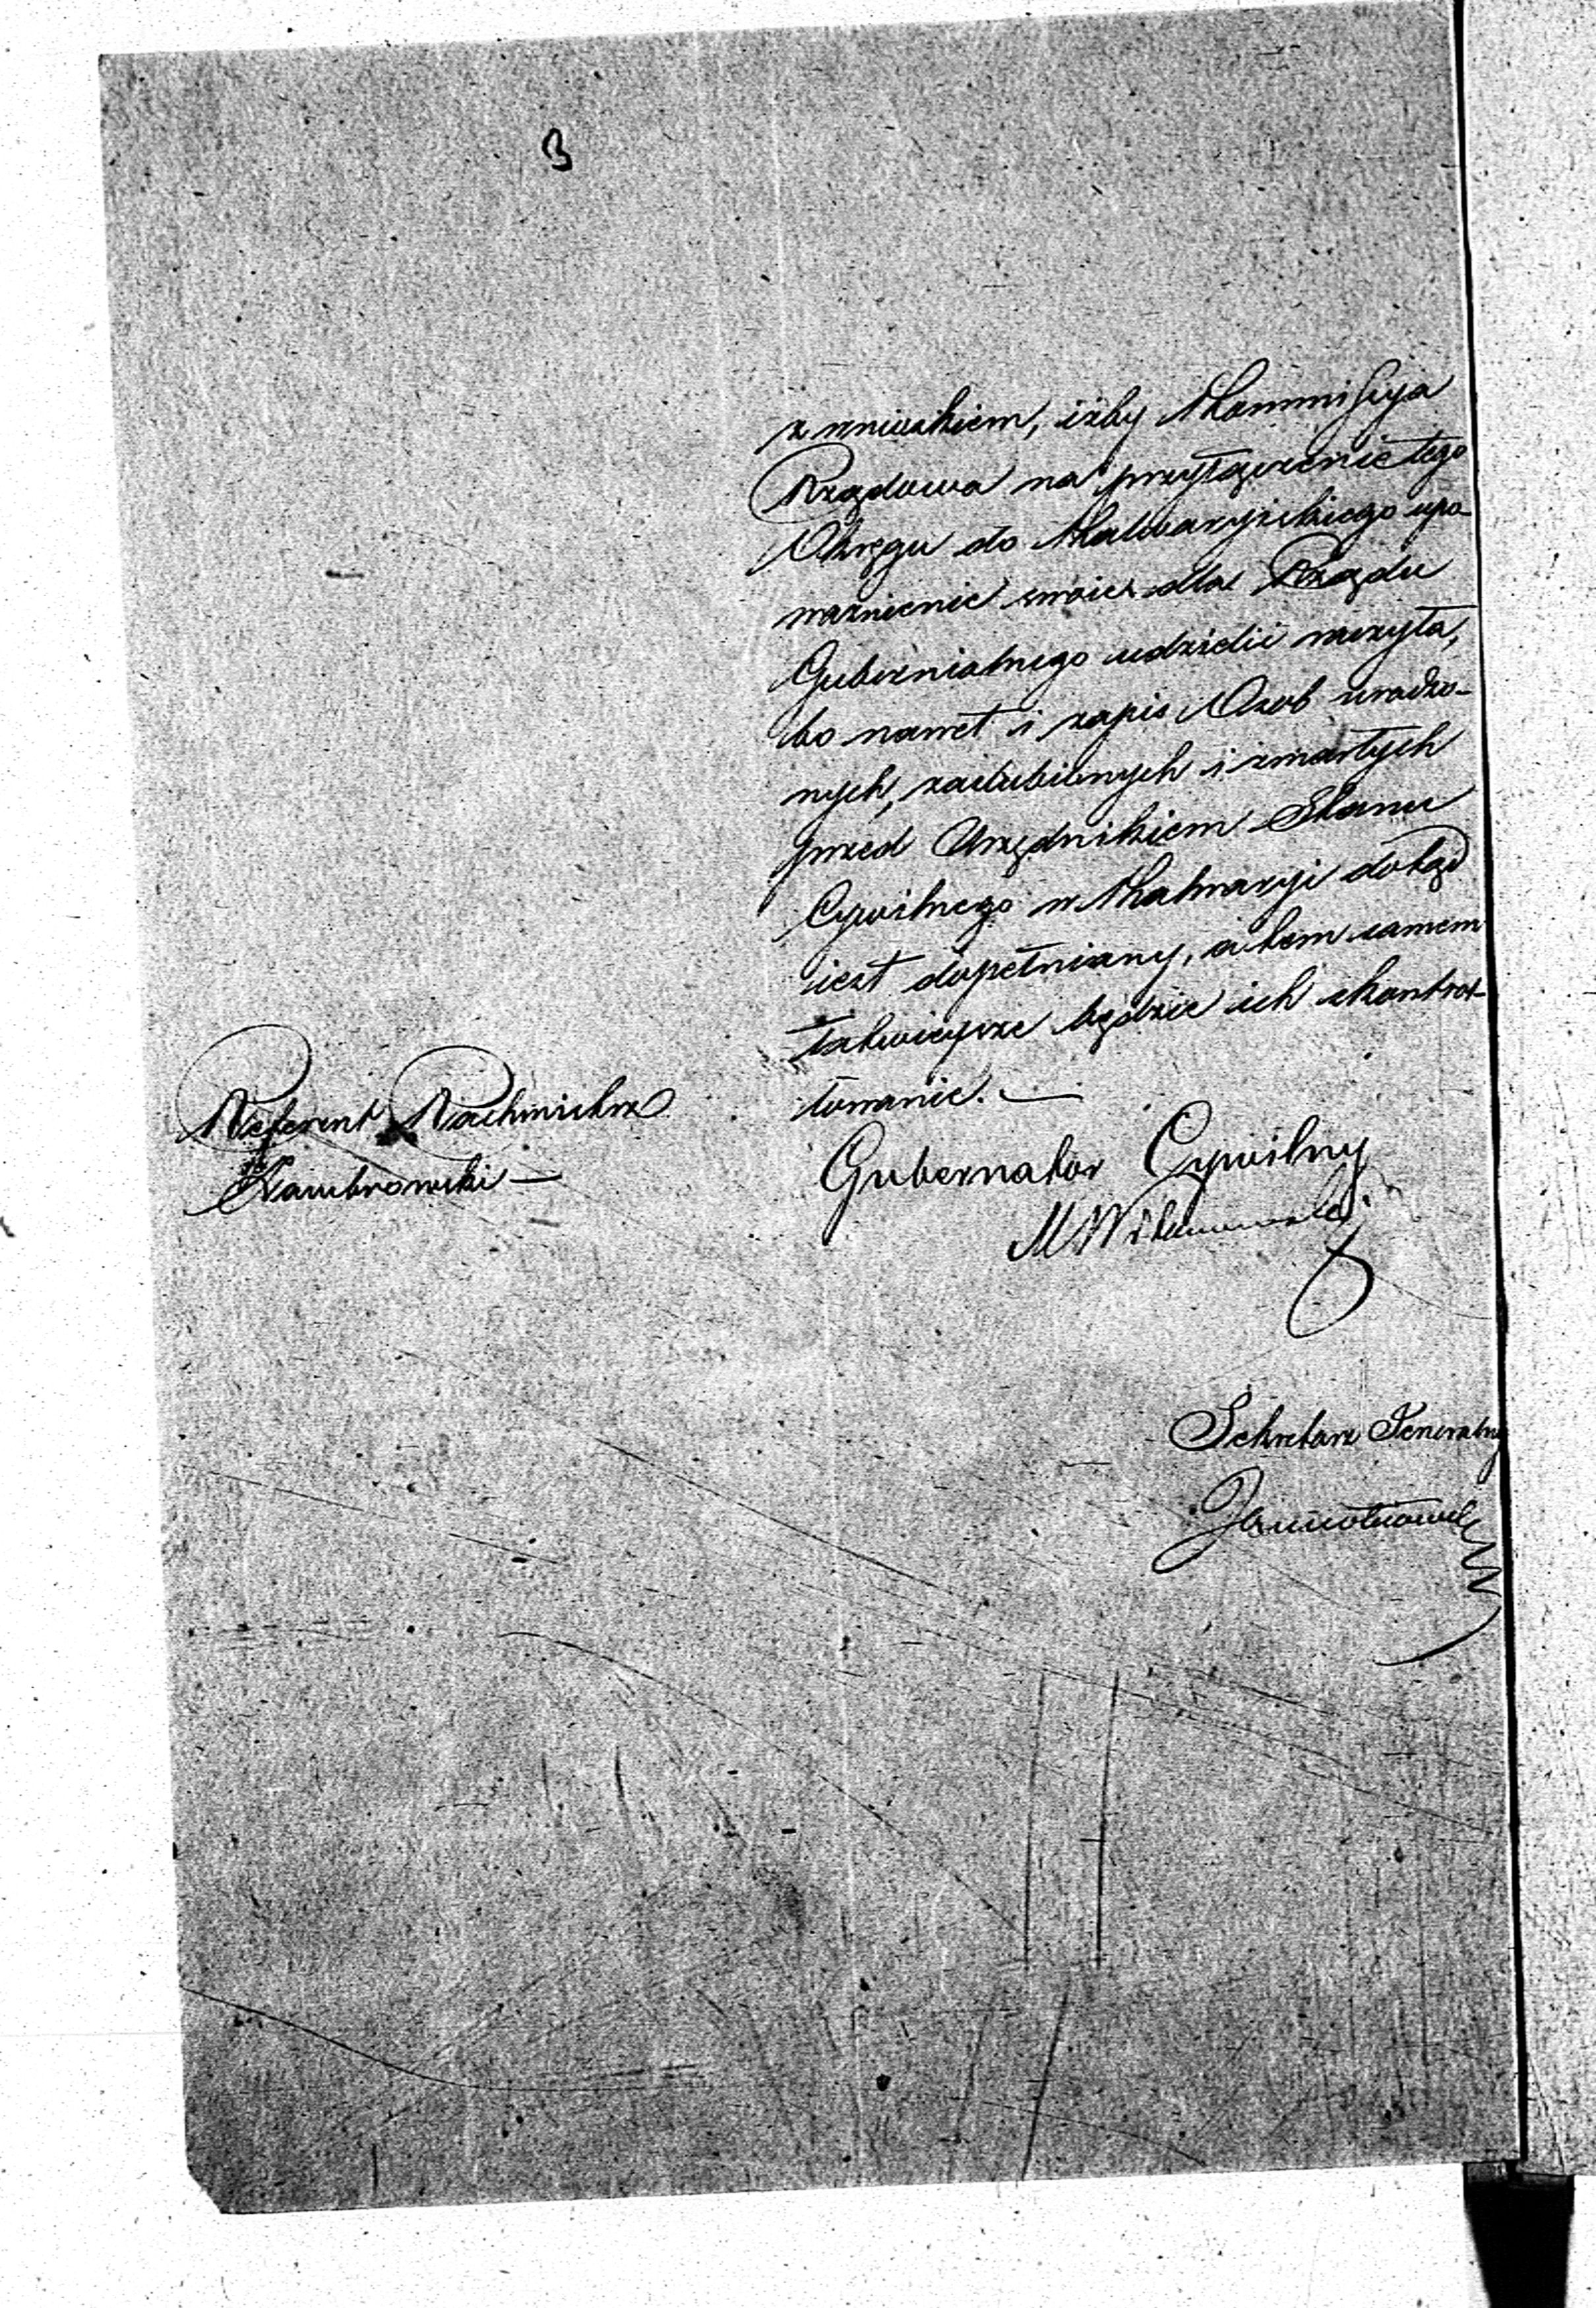 3
z wnioskiem, iżby Kommissya
Rządowa na przyłączenie tego
Okręgu do Kalwaryiskiego upo-
ważnienie swoie dla Rządu
Gubernialnego udzielić raczyła,
bo nawet i zapis Osob urodzo-
nych, zaślubionych i zmarłych
przed Urzędnikiem Stanu
Cywilnego w Kalwaryi dotąd
iest dopełniany, a tem samem
łatwieysze będzie ich skontrol-
lowanie.
Gubernator Cywilny
M
Referent Rachmistrz
Sekretarz Generalny